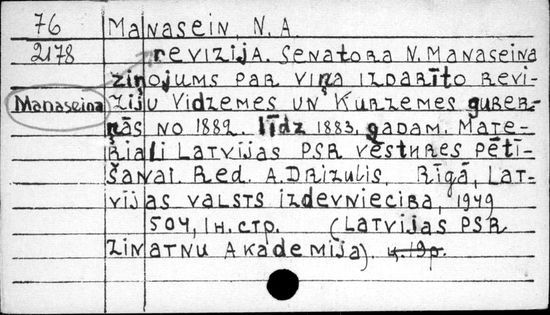 76 Manasein, N. A.
2178 revizija. Senatora N. Manaseina
ziņojums par viņa izdarīto revi-
Manaseina ziju Vidzemes un Kurzemes guber-
ņās no 1882. līdz 1883. gadam. Mate-
ŗiali Latvijas PSR vēstures pētī-
šanai. Red. A. Drizulis, Rīgā, Lat-
vijas valsts izdevnieciba, 1949
504, 1 н. стр. (Latvijas PSR
zinatnu Akademija). ц. 19р.